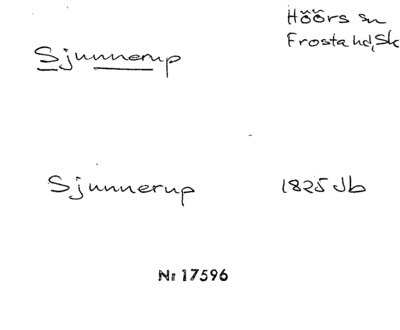 Höörs sn
Sjunnerup
Frosta hd, Sk
Sjunnerup 1825 Jb
Nr 17596